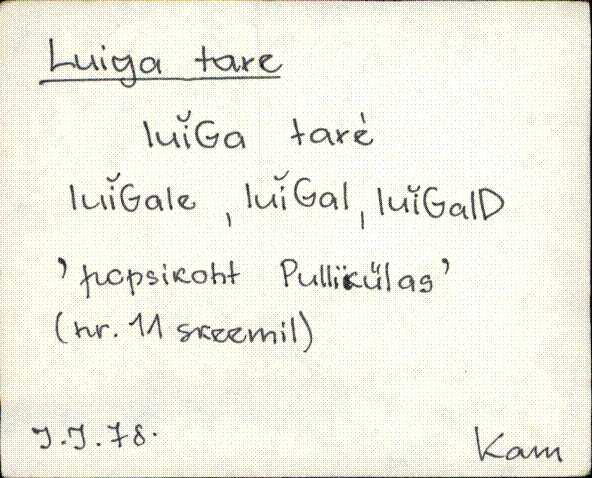 Luiga tare
luĭGa tarè
luĭGale, luĭGal, luĭGalD
’popsikoht Pulliküläs’
(nr. 11 skeemil)
J.J.78.
Kam